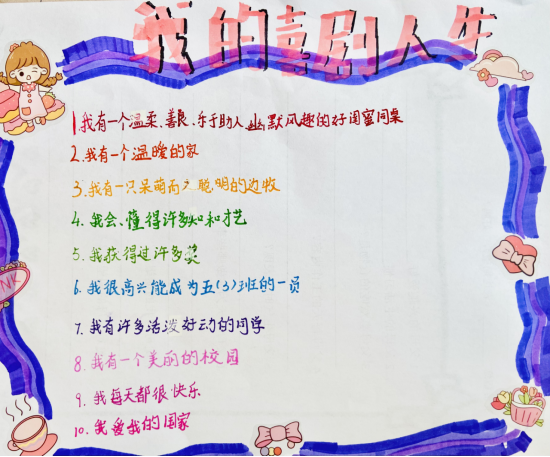 我的喜剧人生
1.我有一个温柔、善良、乐于助人、幽默风趣的好闺蜜同桌
2.我有一个温暖的家
3.我有一只呆萌而又聪明的边牧
4.我会、懂得许多知和才艺
5.我获得过许多奖
6.我很高兴能成为五(3)班的一员
7.我有许多活泼好动的同学
8.我有一个美丽的校园
9.我每天都很快乐
10.我爱我的国家